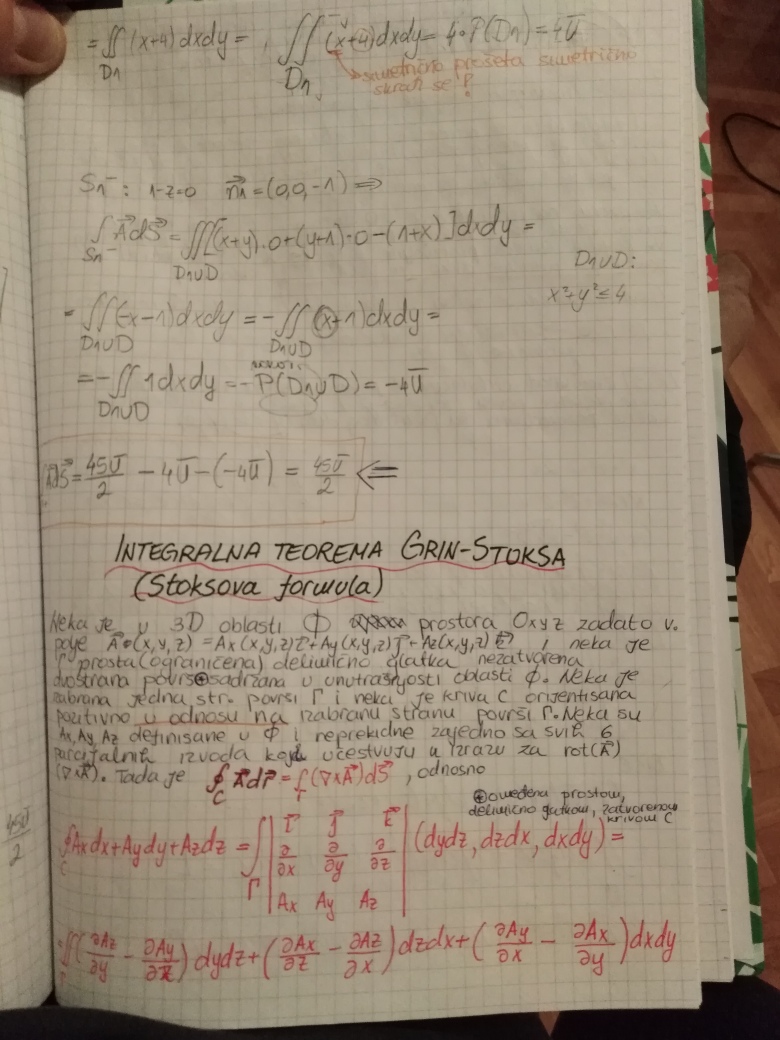 = ∬_{D1} (x+4) dxdy = , ∬_{D1} (x+4) dxdy = 4·P(D1) = 4π
simetrično preseta simetrično
skroch se ?
S1⁻ : 1-z=0 n⃗1=(0,0,-1) ⇒
∫_{S1⁻} A⃗dS⃗ = ∬_{D1∪D} [(x+y)·0+(y+1)·0-(1+x)] dxdy =
D1∪D:
x²+y²≤4
= ∬_{D1∪D} (-x-1)dxdy = -∬_{D1∪D} (x+1)dxdy =
= -∬_{D1∪D} 1dxdy = -P(D1∪D) = -4π
A⃗dS⃗ = 45π/2 - 4π-(-4π) = 45π/2 ⇐
INTEGRALNA TEOREMA GRIN-STOKSA
(Stoksova formula)
Neka je u 3D oblasti Φ prostora Oxyz zadato v.
polje A⃗(x,y,z) = Ax(x,y,z)i⃗+Ay(x,y,z)j⃗+Az(x,y,z)k⃗ i neka je
Γ prosta (ograničena) delimično glatka nezatvorena
dvostrana površ⊕sadržana u unutrašnjosti oblasti Φ. Neka je
izabrana jedna str. površi Γ i neka je kriva C orijentisana
pozitivno u odnosu na izabranu stranu površi Γ. Neka su
Ax, Ay, Az definisane u Φ i neprekidne zajedno sa svih 6
parcijalnih izvoda koji učestvuju u izrazu za rot(A⃗)
(∇xA⃗). Tada je ∮_C A⃗dr⃗ = ∫_Γ (∇xA⃗)dS⃗ , odnosno
⊕omeđena prostom,
delimično glatkom, zatvorenom
krivom C
∮_C Axdx+Aydy+Azdz = ∫_Γ | i⃗ j⃗ k⃗ |
| ∂/∂x ∂/∂y ∂/∂z | (dydz, dzdx, dxdy) =
| Ax Ay Az |
= ∬_Γ (∂Az/∂y - ∂Ay/∂z) dydz + (∂Ax/∂z - ∂Az/∂x) dzdx + (∂Ay/∂x - ∂Ax/∂y) dxdy
45π/2